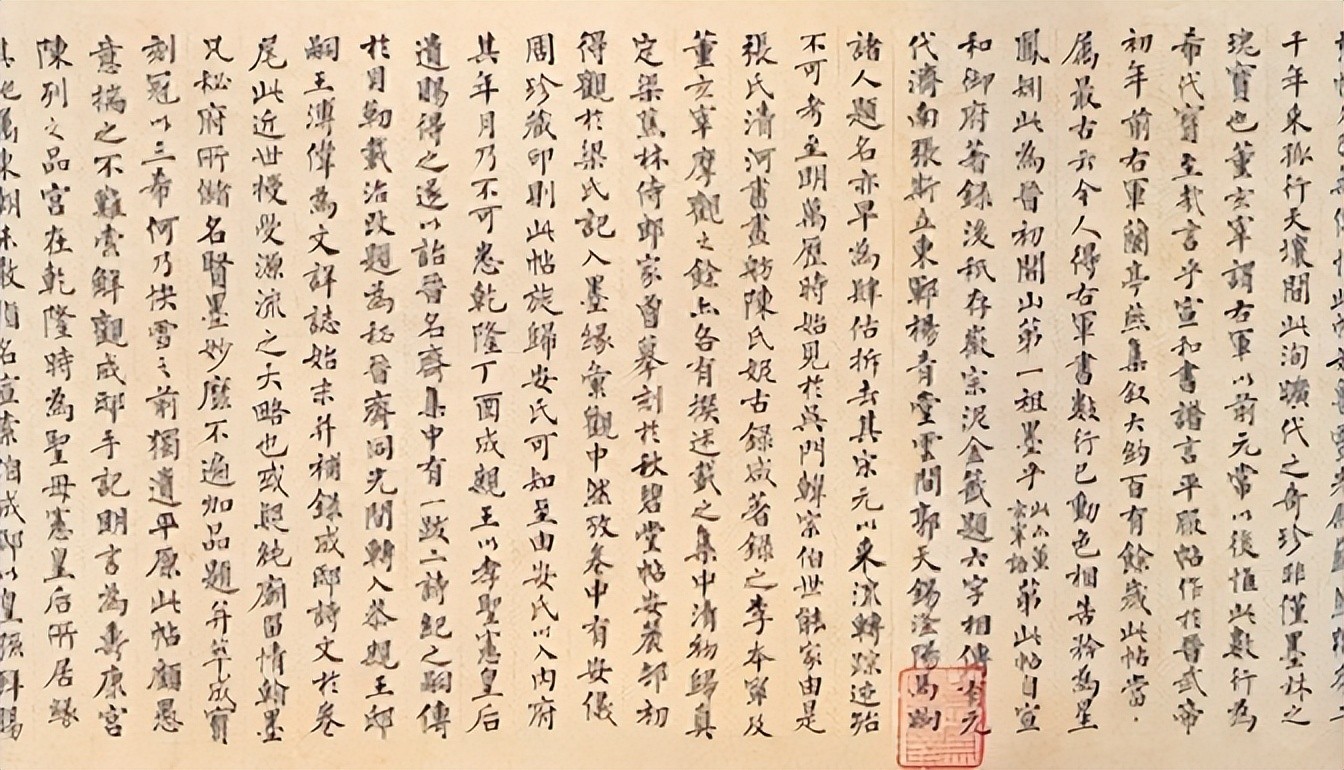 千年來孤行天壤間此洵曠代之奇珍非僅墨林之
瑰寶也董玄宰謂右軍以前元常以後惟此數行為
希代寶至哉言乎宣和書譜言平脤帖作於晉武帝
初年前右軍蘭亭燕集敘大約百有餘歲此帖當
屬最古云今人得右軍書數行已動色相告矜為星
鳳矧此為晉初開山第一祖墨乎以上董玄宰語第此帖自宣
和御府著錄後秖存徽宗泥金籤題六字相傳有元
代濟南張斯立東鄆楊肯堂雲間郭天錫滏陽馬昫
諸人題名亦早為肆估拆去其宋元以來流轉蹤迹殆
不可考至明萬歷時始見於吳門韓宗伯世能家由是
張氏清河書畫舫陳氏妮古錄咸著錄之李本寧及
董玄宰摩觀之餘亦各有撰述載之集中清初歸真
定梁蕉林侍郎家曾摹刻於秋碧堂帖安麓邨初
得觀於梁氏記入墨緣彙觀中然攷卷中有安儀
周珍藏印則此帖旋歸安氏可知至由安氏以入內府
其年月乃不可悉乾隆丁酉成親王以孝聖憲皇后
遺賜得之遂以詒晉名齋集中有一跋二詩紀之嗣傳
於貝勒載治改題為秘晉齋同光間轉入恭親王邸
嗣王溥偉為文詳誌始末并補錄成邸詩文於卷
尾此近世授受源流之大略也或疑純廟留情翰墨
凡秘府所儲名賢墨妙靡不遍加品題并萃成寶
刻冠以三希何乃快雪之前獨遺平原此帖顧愚
意揣之不難索解觀成邸手記明言為壽康宮
陳列之品宮在乾隆時為聖母憲皇后所居緣